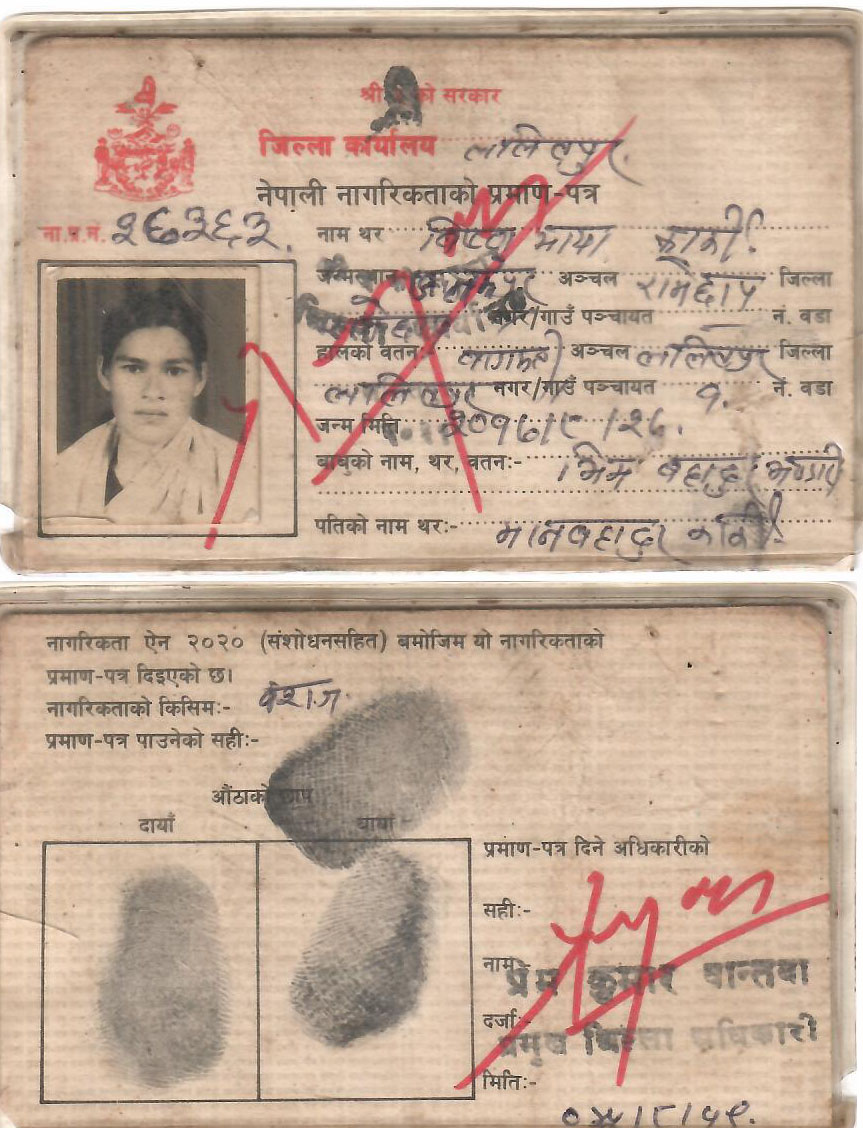 श्री ५ को सरकार
जिल्ला कार्यालय ललितपुर
नेपाली नागरिकताको प्रमाण-पत्र
ना.प्र.नं. २६३६३.
नाम थर विष्णु माया कार्की
अञ्चल रामेछाप जिल्ला
नगर/गाउँ पञ्चायत नं. वडा
हालको वतन वागमती अञ्चल ललितपुर जिल्ला
ललितपुर नगर/गाउँ पञ्चायत १. नं. वडा
जन्म मिति २०१७।९।२८.
बाबुको नाम, थर, वतनः- भिम बहादुर भण्डारी
पतिको नाम थरः- मानबहादुर कार्की
नागरिकता ऐन २०२० (संशोधनसहित) बमोजिम यो नागरिकताको
प्रमाण-पत्र दिइएको छ।
नागरिकताको किसिमः- वंशज
प्रमाण-पत्र पाउनेको सहीः-
औंठाको छाप
दायाँ बायाँ
प्रमाण-पत्र दिने अधिकारीको
सहीः-
नाम प्रेम कुमार वान्तवा
दर्जाः-
प्रमुख जिल्ला अधिकारी
मितिः-